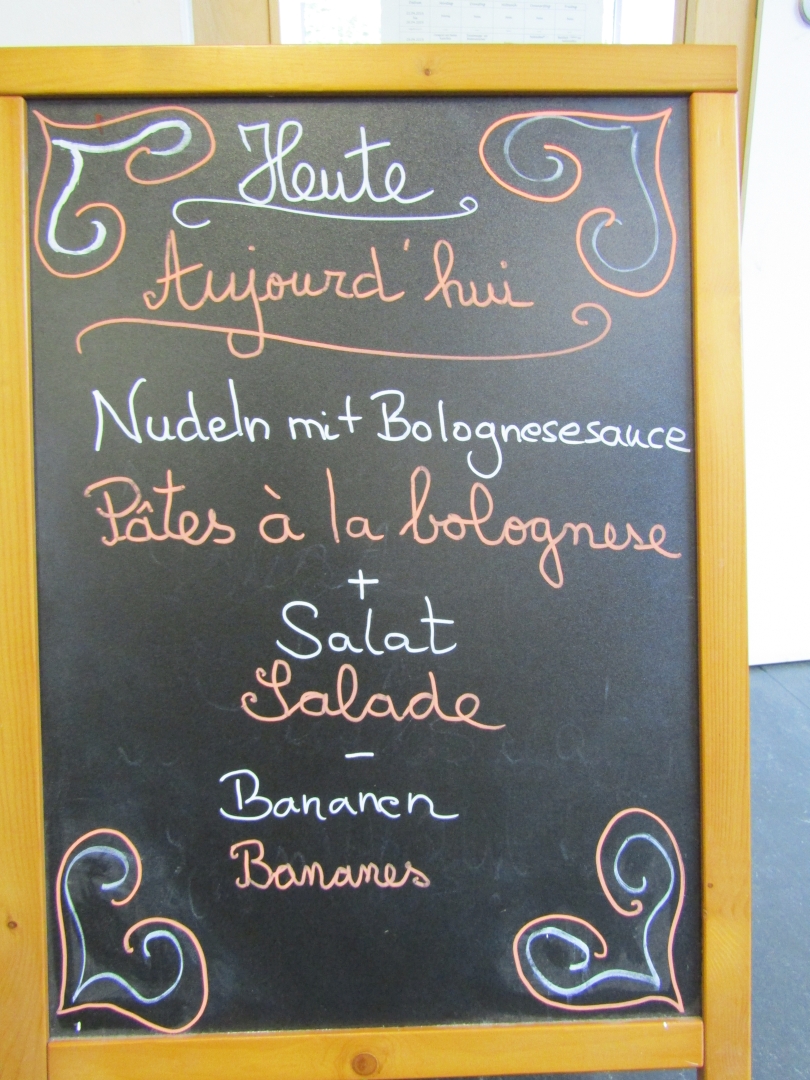 Heute
Aujourd'hui
Nudeln mit Bolognesesauce
Pâtes à la bolognese
+
Salat
Salade
-
Bananen
Bananes